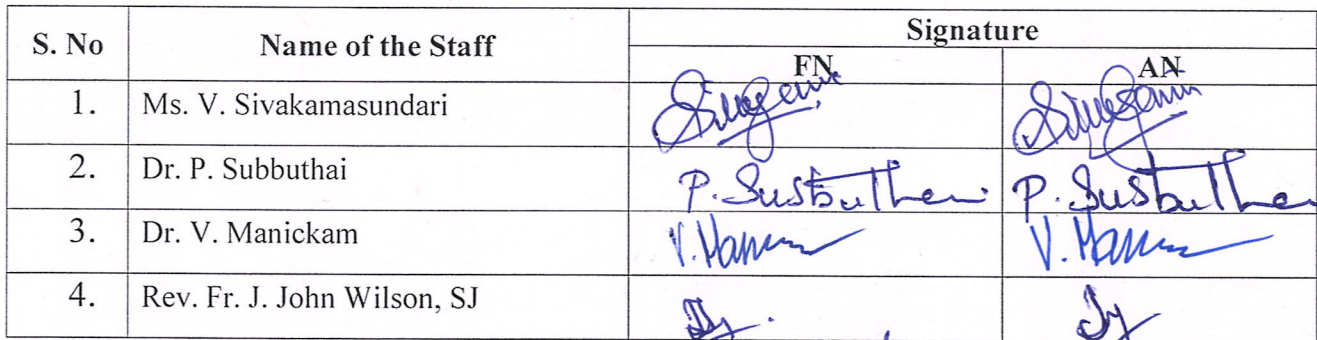 S. No Name of the Staff Signature
FN AN
1. Ms. V. Sivakamasundari
2. Dr. P. Subbuthai P. Subbuthai P. Subbuthai
3. Dr. V. Manickam
4. Rev. Fr. J. John Wilson, SJ